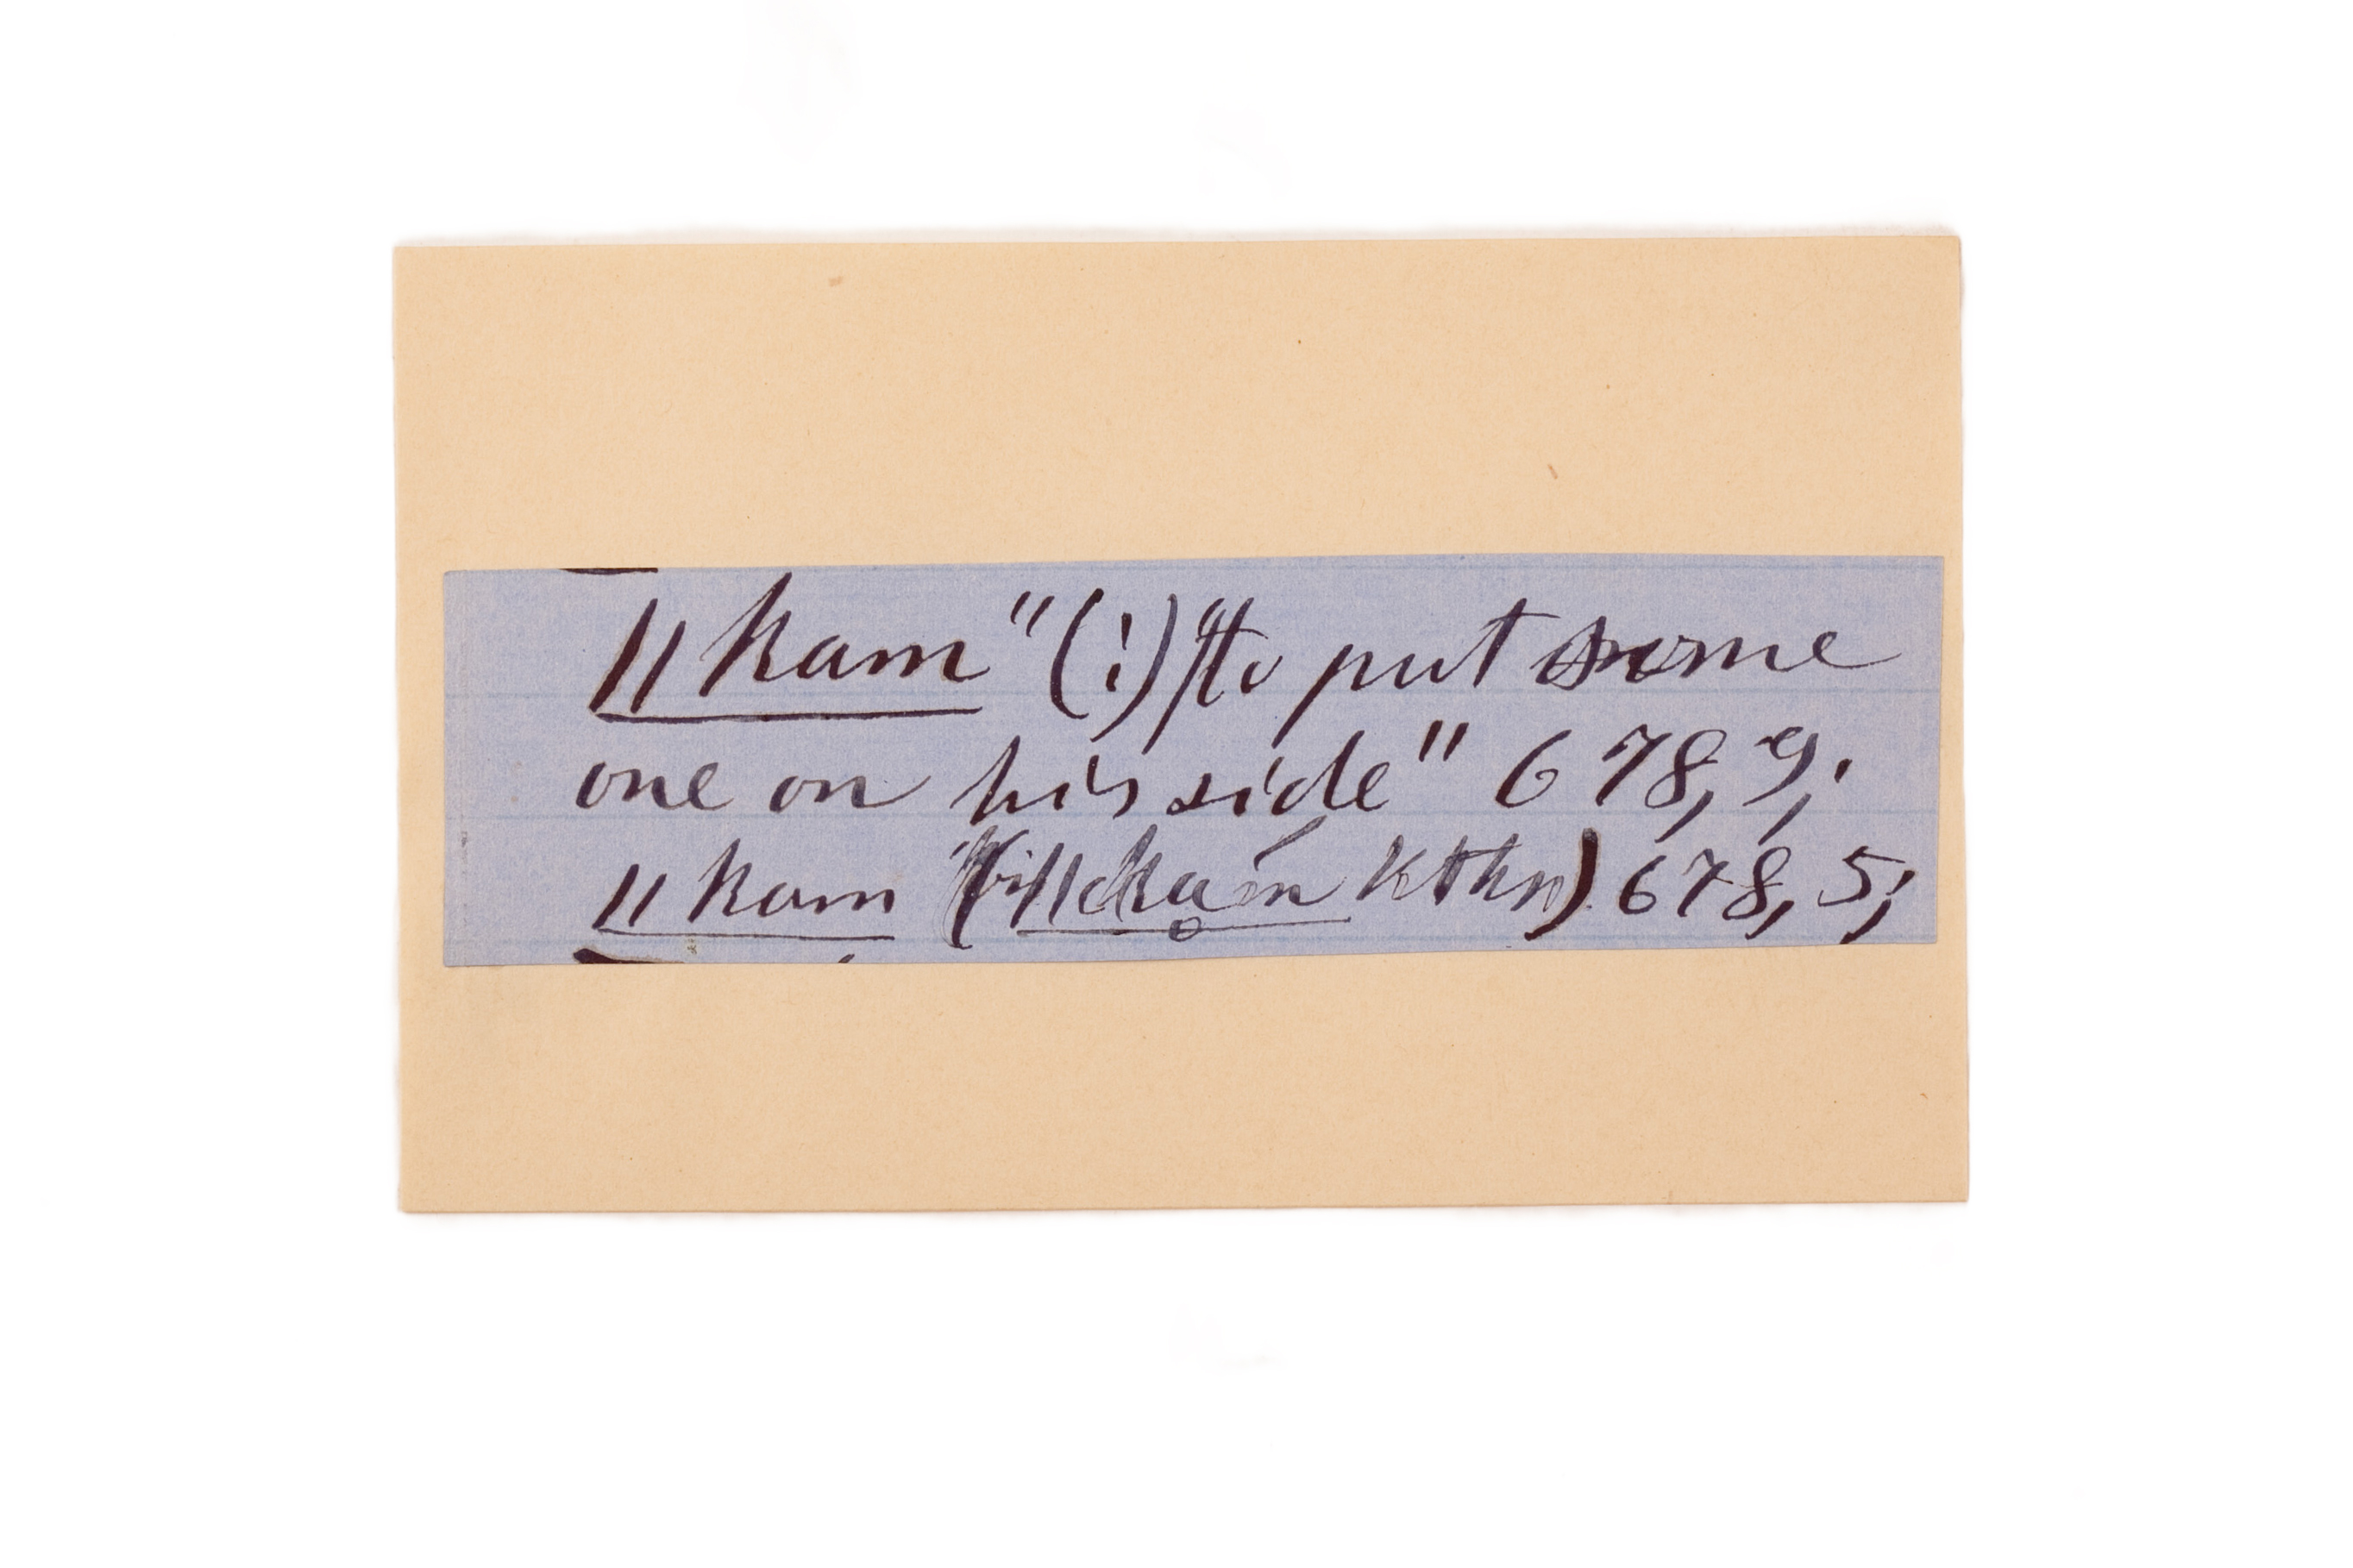 //kam "(!) to put some
one on his side" 678, 9;
//kam 678, 5;